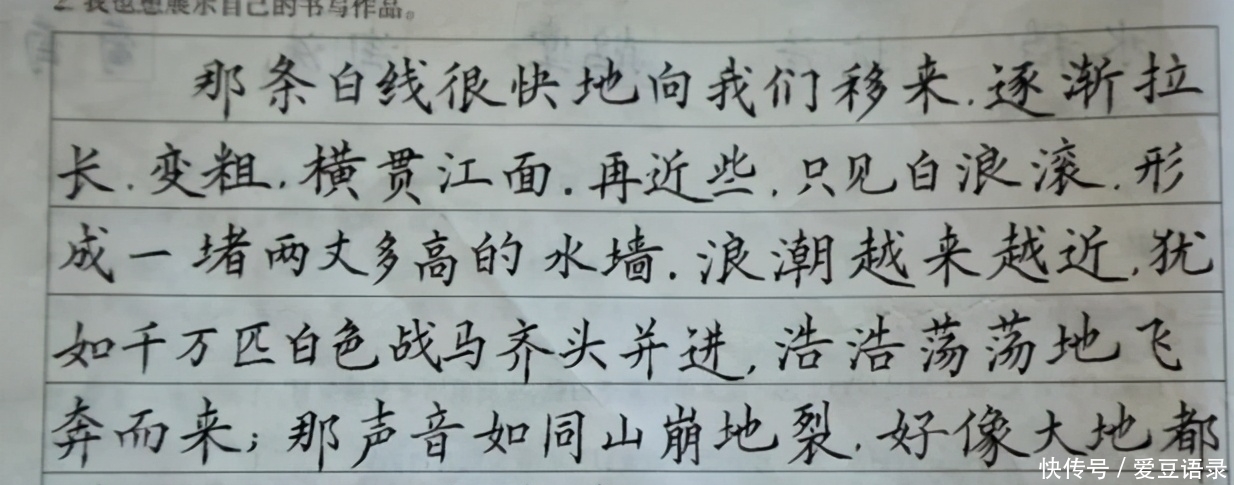 2. 我也想展示自己的书写作品。
那条白线很快地向我们移来.逐渐拉
长.变粗.横贯江面.再近些.只见白浪滚.形
成一堵两丈多高的水墙.浪潮越来越近,犹
如千万匹白色战马齐头并进,浩浩荡荡地飞
奔而来;那声音如同山崩地裂.好像大地都
快传号/爱豆语录